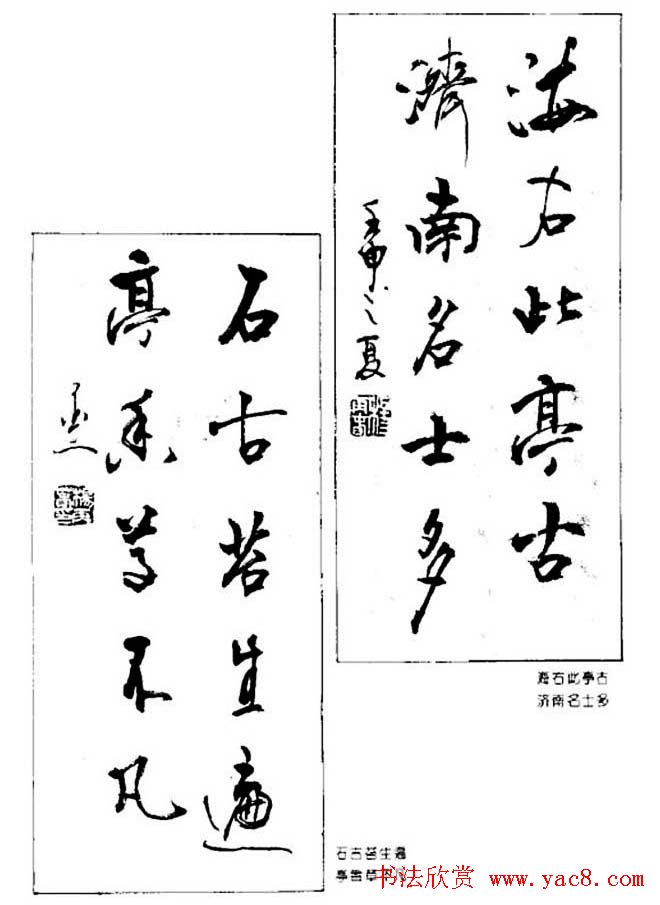 海右此亭古
濟南名士多
壬申之夏
石古苔生遍
亭香草不凡
海右此亭古
济南名士多
石古苔生遍
亭香草
书法欣赏 www.yac8.com